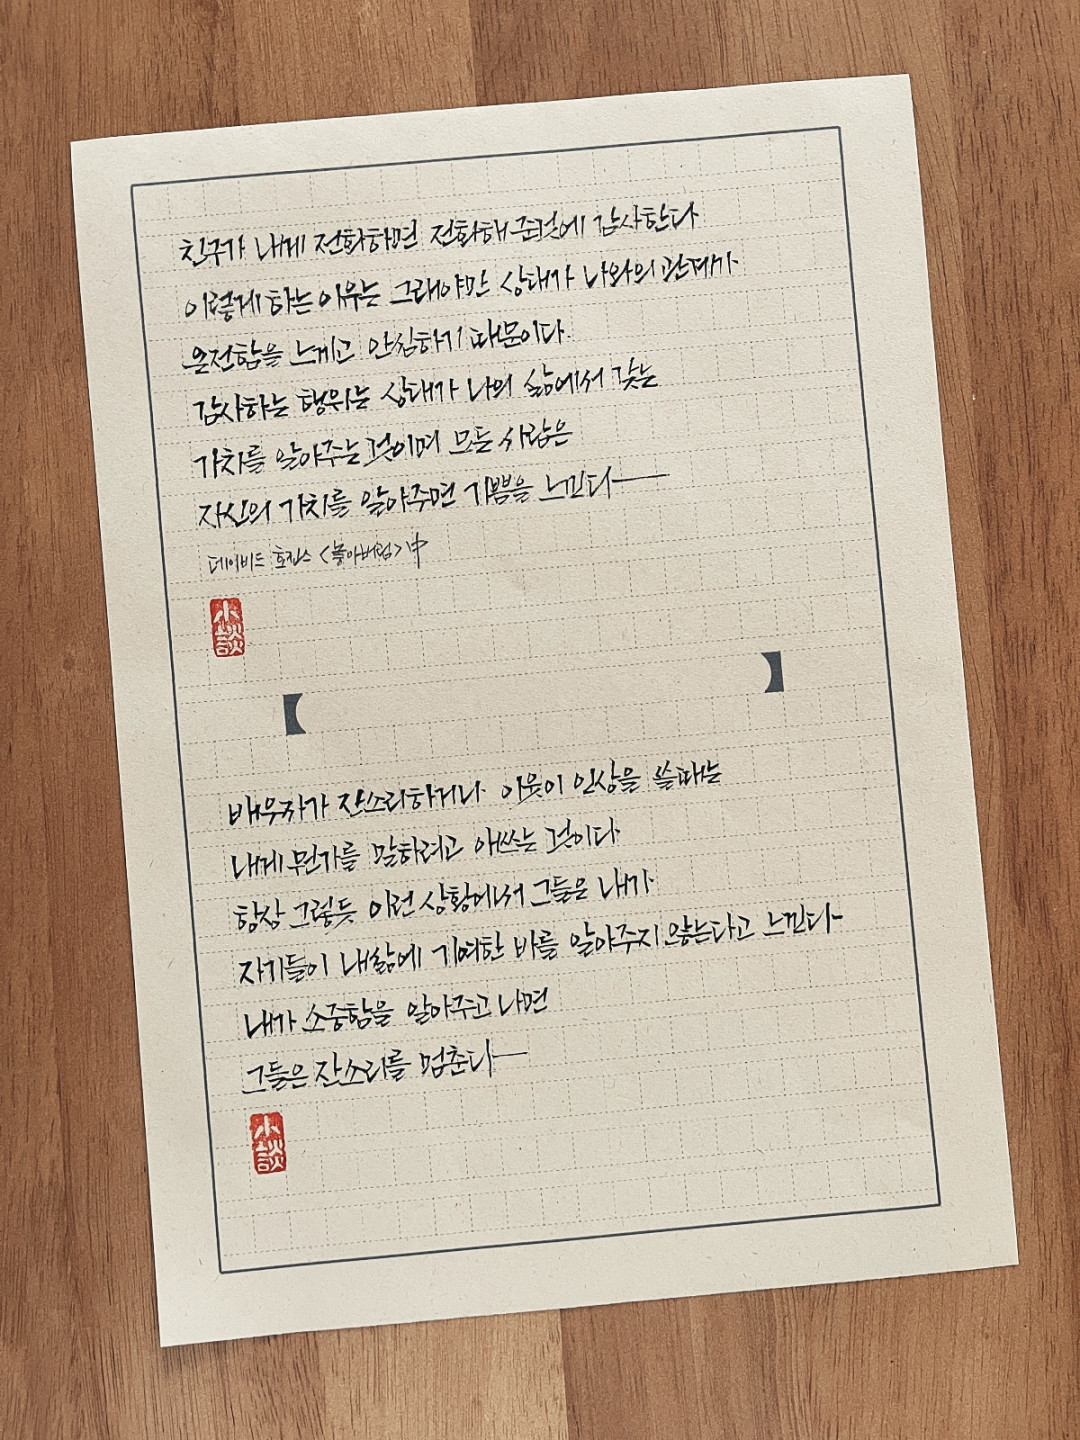 친구가 내게 전화하면 전화해 준것에 감사한다
이렇게 하는 이유는 그래야만 상대가 나와의 관계가
온전함을 느끼고 안심하기 때문이다.
감사하는 행위는 상대가 나의 삶에서 갖는
가치를 알아주는 것이며 모든 사람은
자신의 가치를 알아주면 기쁨을 느낀다
데이비드 호킨스 <놓아버림> 中
小談
【 】
배우자가 잔소리하거나 이웃이 인상을 쓸때는
내게 뭔가를 말하려고 애쓰는 것이다
항상 그렇듯 이런 상황에서 그들은 내가
자기들이 내삶에 기여한 바를 알아주지 않는다고 느낀다
내가 소중함을 알아주고 나면
그들은 잔소리를 멈춘다
小談